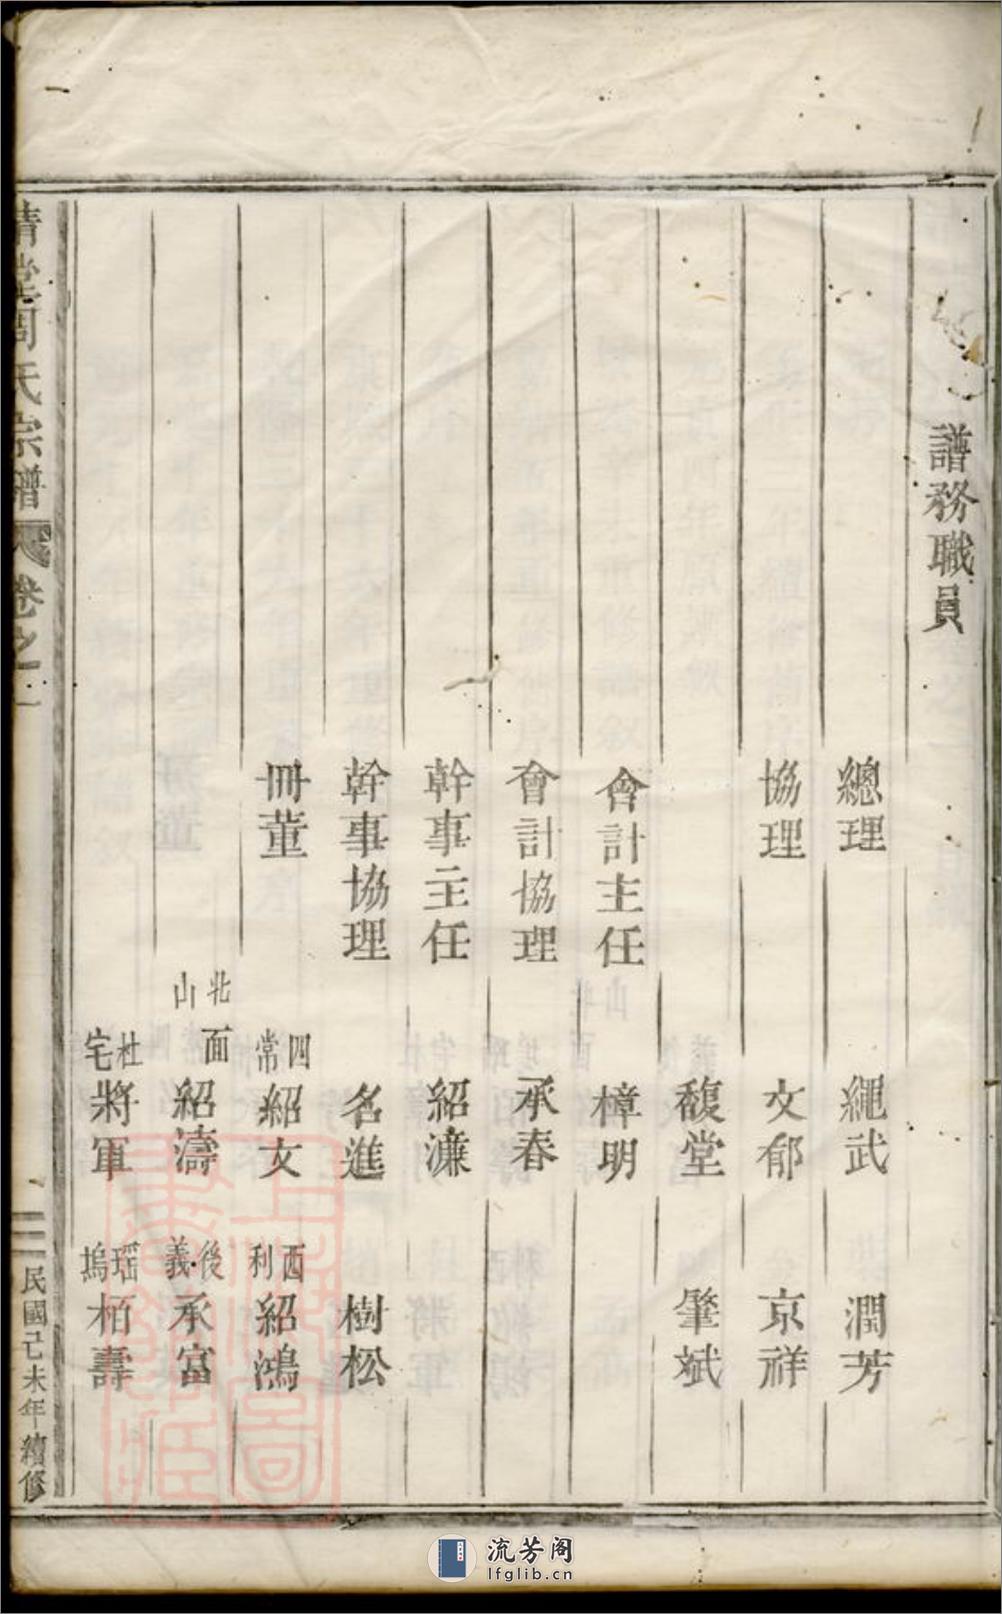 譜務職員
總理 繩武 潤芳
協理 文郁 京祥
馥堂 肇斌
會計主任 樟明
會計協理 承春
幹事主任 紹濂
幹事協理 名進 樹松
冊董 四常 紹文 西利 紹鴻
北山面 紹濤 後義 承富
杜宅 將軍 瑶塢 栢壽
周氏宗譜 卷之一
民國己未年續修
上海圖書館藏
流芳阁
lfglib.cn